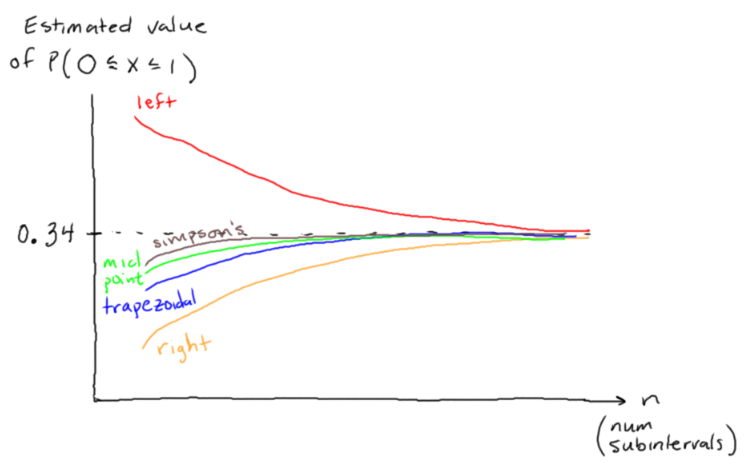 Estimated value
of P(0 ≤ x ≤ 1)
left
0.34
simpson's
mid
point
trapezoidal
right
n
(num
subintervals)